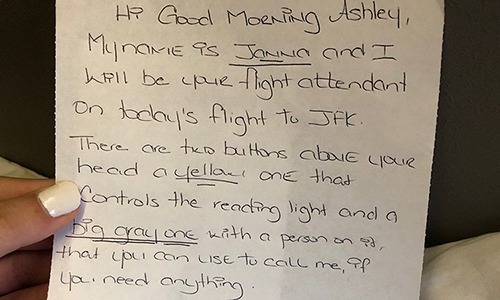 Hi Good Morning Ashley,
My name is Janna and I
will be your flight attendant
on today's flight to JFK.
There are two buttons above your
head a yellow one that
controls the reading light and a
big gray one with a person on it,
that you can use to call me, if
you need anything.